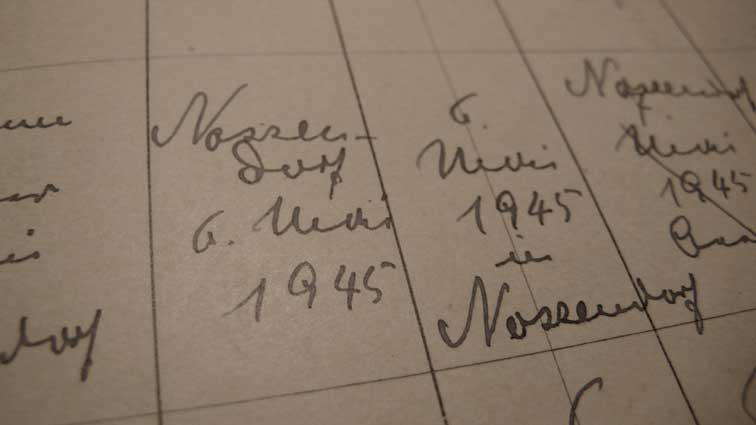 Nossen-
dorf
6. Mai
1945
6.
Mai
1945
in
Nossendorf
Nossendorf
Mai
1945
dorf